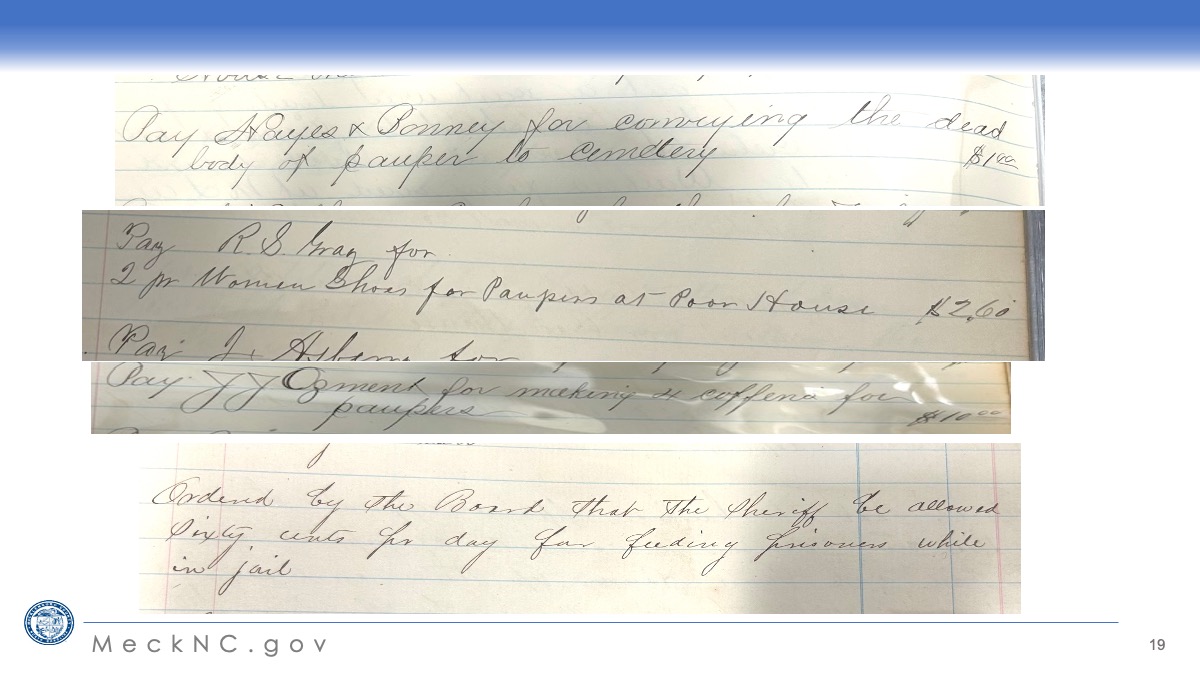 Pay Hayes & Bonney for conveying the dead
body of pauper to cemetery $1 00
Pay R. S. Gray for
2 pr Women Shoes for Paupers at Poor House $2.60
Pay for
Pay J J Ozment for making 4 coffens for
paupers $10 00
Ordered by the Board that the Sheriff be allowed
Sixty cents pr day for feeding prisoners while
in jail
MeckNC.gov
19